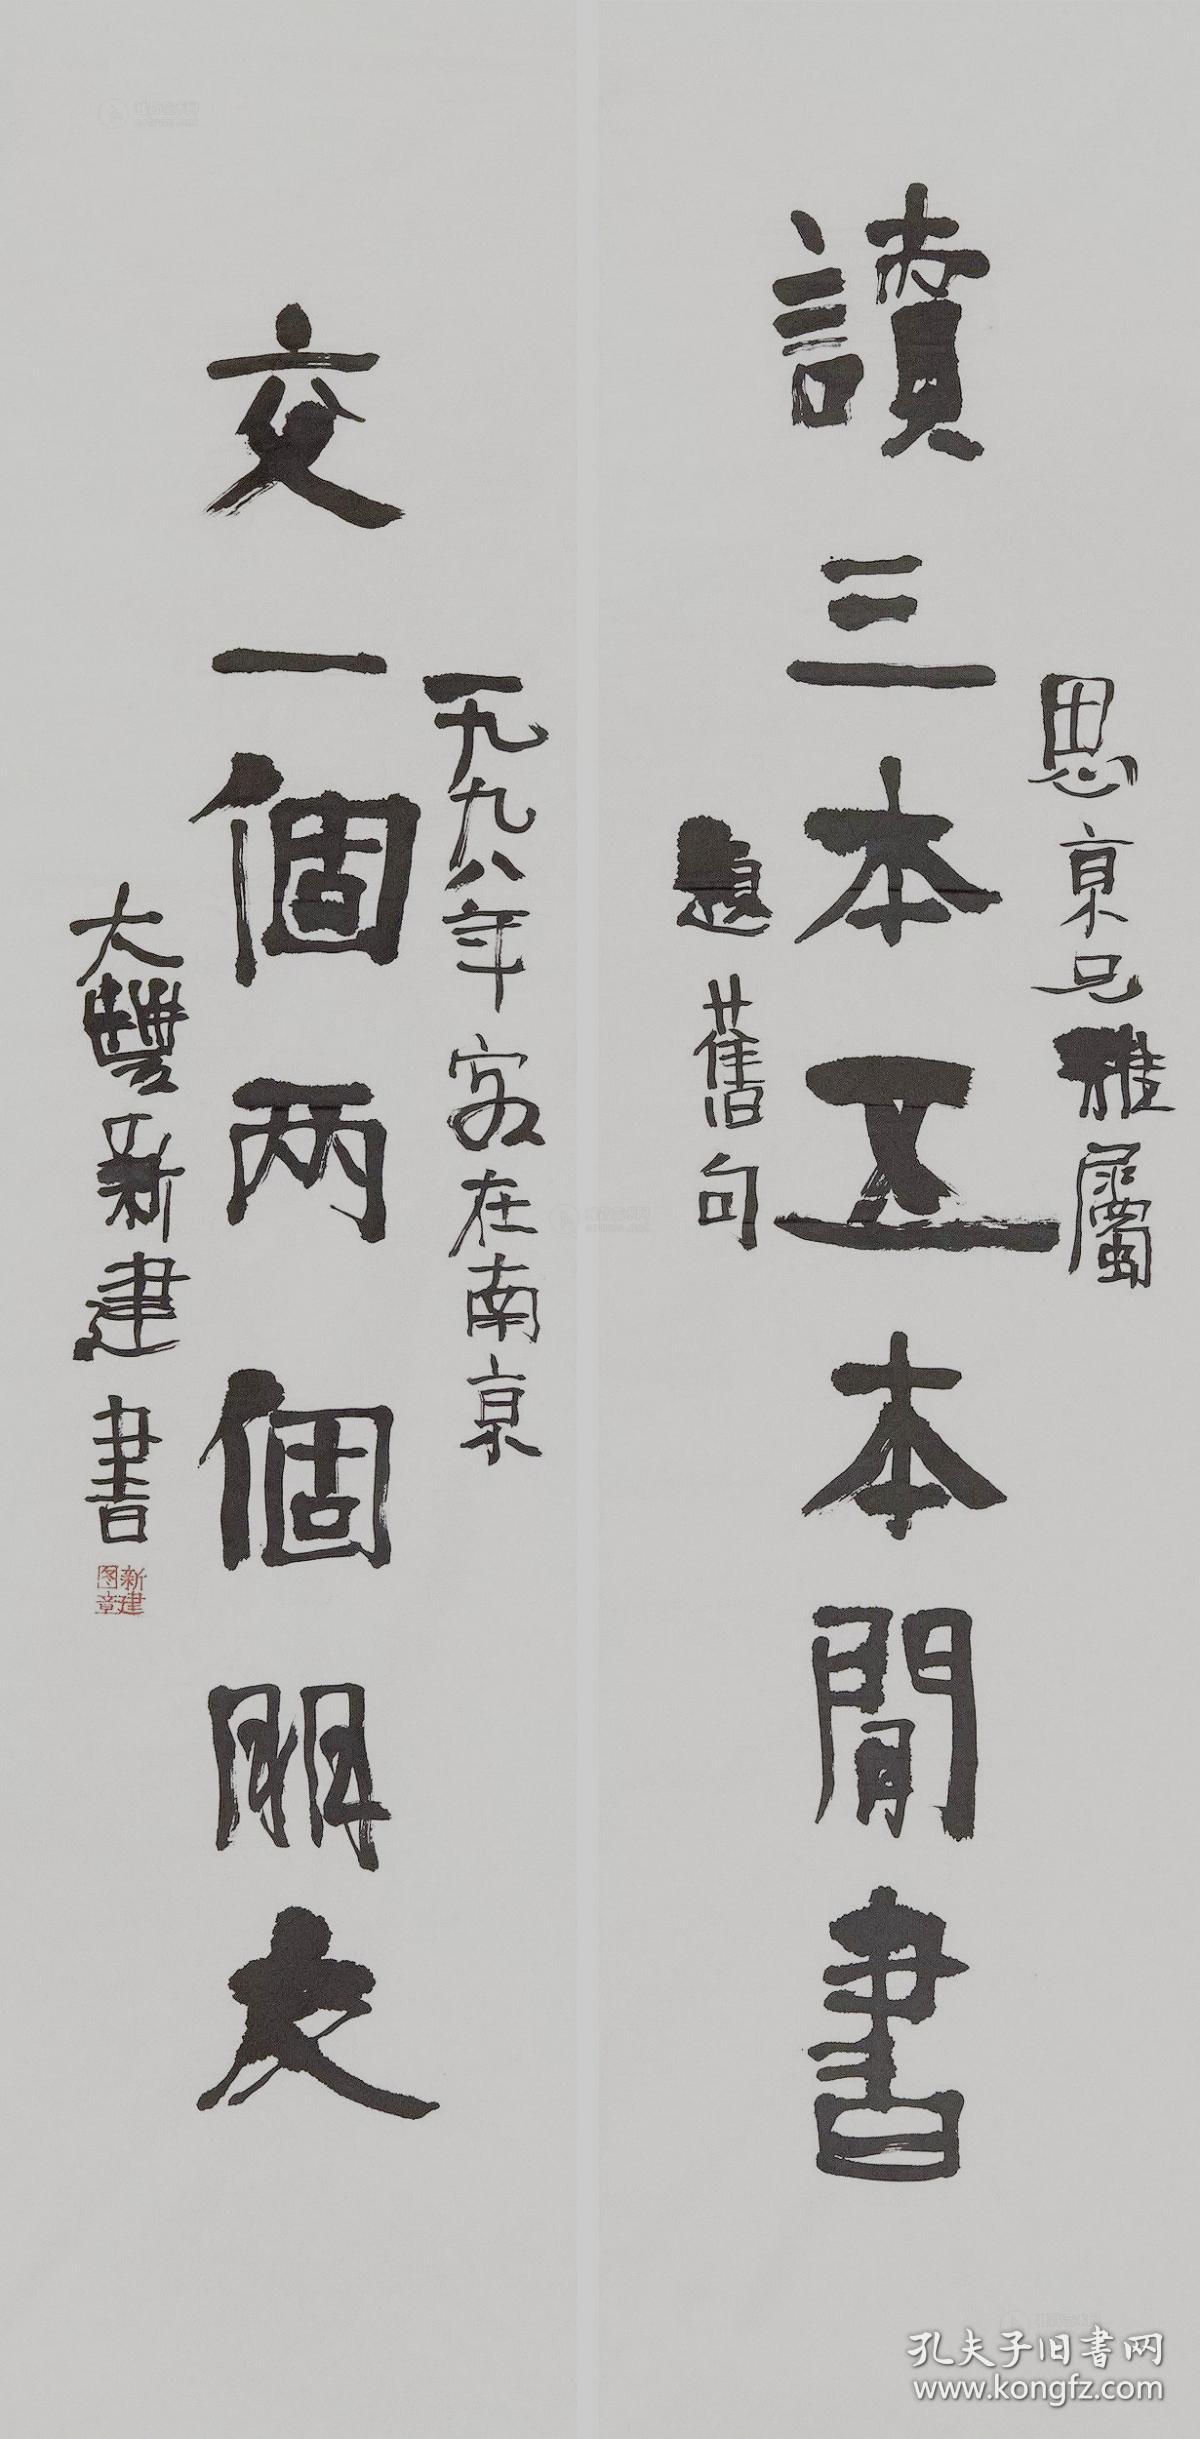 思京兄雅屬
讀三本五本閒書
題舊句
一九九八年客在南京
交一個两個朋友
大豐新建書
新建
图章
孔夫子旧書网
www.kongfz.com